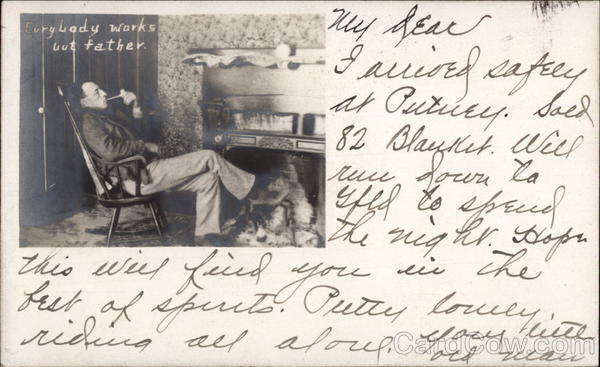 Everybody works
but father.
My dear
I arrived safely
at Putney. Sold
82 Blanket. Will
run down to
Gfld to spend
the night. Hope
this will find you in the
best of spirits. Pretty lonely,
riding all along. Your little
old man
CardCow.com